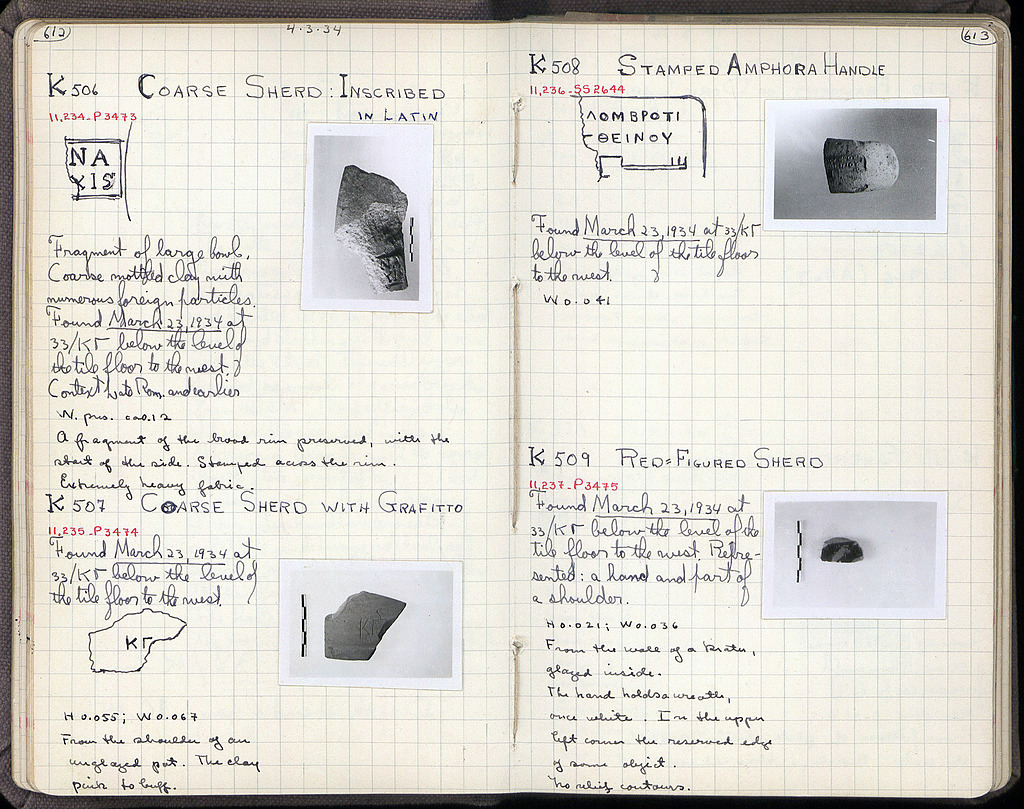 612
4.3.34
K 506 COARSE SHERD: INSCRIBED
IN LATIN
11,234-P3473
NA
XIS
Fragment of large bowl.
Coarse mottled clay with
numerous foreign particles.
Found March 23, 1934 at
33/ΚΓ below the level of
the tile floor to the west.
Context Late Rom. and earlier
W. pres. ca 0.12
A fragment of the broad rim preserved, with the
start of the side. Stamped across the rim.
Extremely heavy fabric.
K 507 COARSE SHERD WITH GRAFITTO
11,235-P3474
Found March 23, 1934 at
33/ΚΓ below the level of
the tile floor to the west.
ΚΓ
H 0.055; W 0.067
From the shoulder of an
unglazed pot. The clay
pink to buff.
613
K 508 STAMPED AMPHORA HANDLE
11,236-SS2644
ΛΟΜΒΡΟΤΙ
ΘΕΙΝΟΥ
Found March 23, 1934 at 33/ΚΓ
below the level of the tile floor
to the west.
W 0.041
K 509 RED-FIGURED SHERD
11,237-P3475
Found March 23, 1934 at
33/ΚΓ below the level of the
tile floor to the west. Repre-
sented: a hand and part of
a shoulder.
H 0.021; W 0.036
From the wall of a krater,
glazed inside.
The hand holds a wreath,
once white. In the upper
left corner the reserved edge
of some object.
No relief contours.